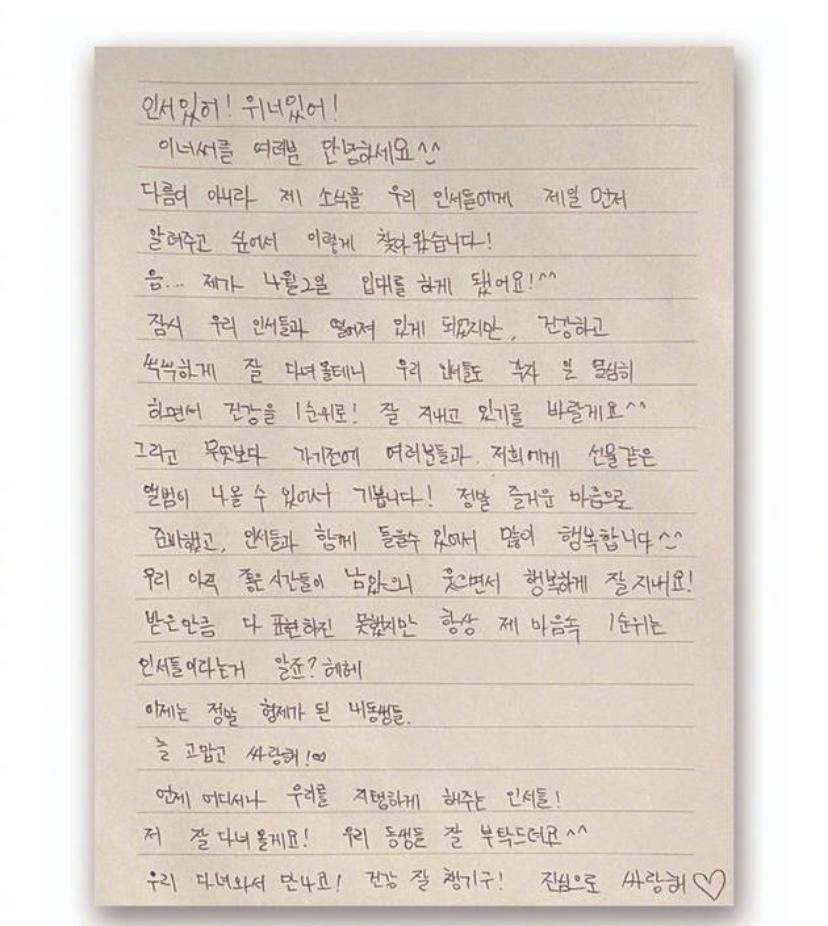 인서있어! 위너있어!
이너써클 여러분 안녕하세요^^
다름이 아니라 제 소식을 우리 인서들에게 제일 먼저
알려주고 싶어서 이렇게 찾아왔습니다!
음... 제가 4월2일 입대를 하게 됐어요!^^
잠시 우리 인서들과 떨어져 있게 되었지만, 건강하고
씩씩하게 잘 다녀올테니 우리 인서들도 각자 일 열심히
하면서 건강을 1순위로! 잘 지내고 있기를 바랄게요^^
그리고 무엇보다 가기전에 여러분들과 저희에게 선물같은
앨범이 나올 수 있어서 기쁩니다! 정말 즐거운 마음으로
준비했고, 인서들과 함께 들을수 있어서 많이 행복합니다^^
우리 아직 좋은 시간들이 남았으니 웃으면서 행복하게 잘 지내요!
받은만큼 다 표현하진 못했지만 항상 제 마음속 1순위는
인서들이라는거 알죠? 헤헤
이제는 정말 형제가 된 내동생들.
늘 고맙고 싸랑해!♡
언제 어디서나 우리를 지탱하게 해주는 인서들!
저 잘 다녀올게요! 우리 동생들 잘 부탁드려요^^
우리 다녀와서 만나고! 건강 잘 챙기구! 진심으로 싸랑해♡